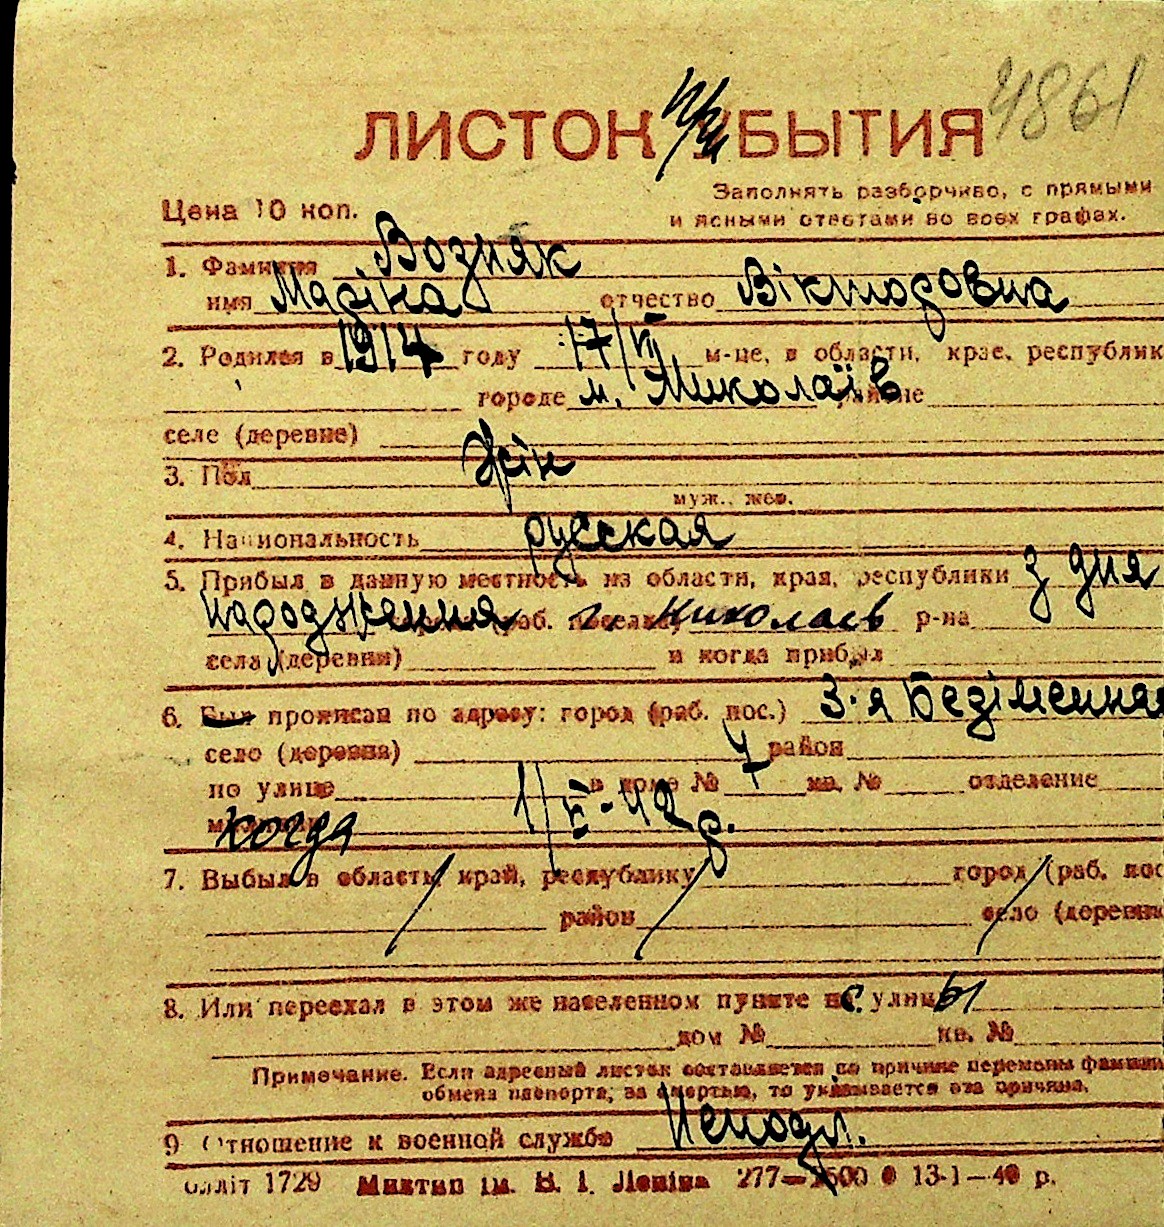 4861
ЛИСТОК при УБЫТИЯ
Цена 10 коп.
Заполнять разборчиво, с прямыми
и ясными ответами во всех графах.
1. Фамилия Возняк
имя Марiна отчество Вікторовна
2. Родился в 1914 году 17/VI м-це, в области, крае, республик
городе м. Миколаїв районе
селе (деревне)
3. Пол Жін
муж., жен.
4. Национальность русская
5. Прибыл в данную местность из области, края, республики з дня
народження (раб. поселка) г. Николаев р-на
села (деревни) и когда прибыл
6. Был прописан по адресу: город (раб. пос.) 3-я Безіменная
село (деревня) район
по улице в доме № 4 кв. № отделение
милиции когда 1/II-42 р.
7. Выбыл в область, край, республику город (раб. пос
район село (деревня
8. Или переехал в этом же населенном пункте с улицы
дом № кв. №
Примечание. Если адресный листок составляется по причине перемены фамилии
обмена паспорта, за смертью, то указывается эта причина.
9 Отношение к военной службе Неподл.
облліт 1729 Миктип ім. В. І. Леніна 277—2500 0 13-1—40 р.